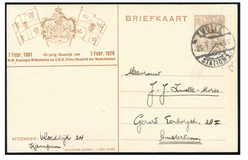 BRIEFKAART
7 Febr. 1901
25-jarig Huwelijk van
7 Febr. 1926
H.M. Koningin Wilhelmina en Z.K.H. Prins Hendrik der Nederlanden
ZWOLLE
STATION
Mevrouw
J. J. Zwolle-Mores.
Gerard Terborgstr. 28 II
Amsterdam
AFZENDER:
Vloeddijk 24
Kampen